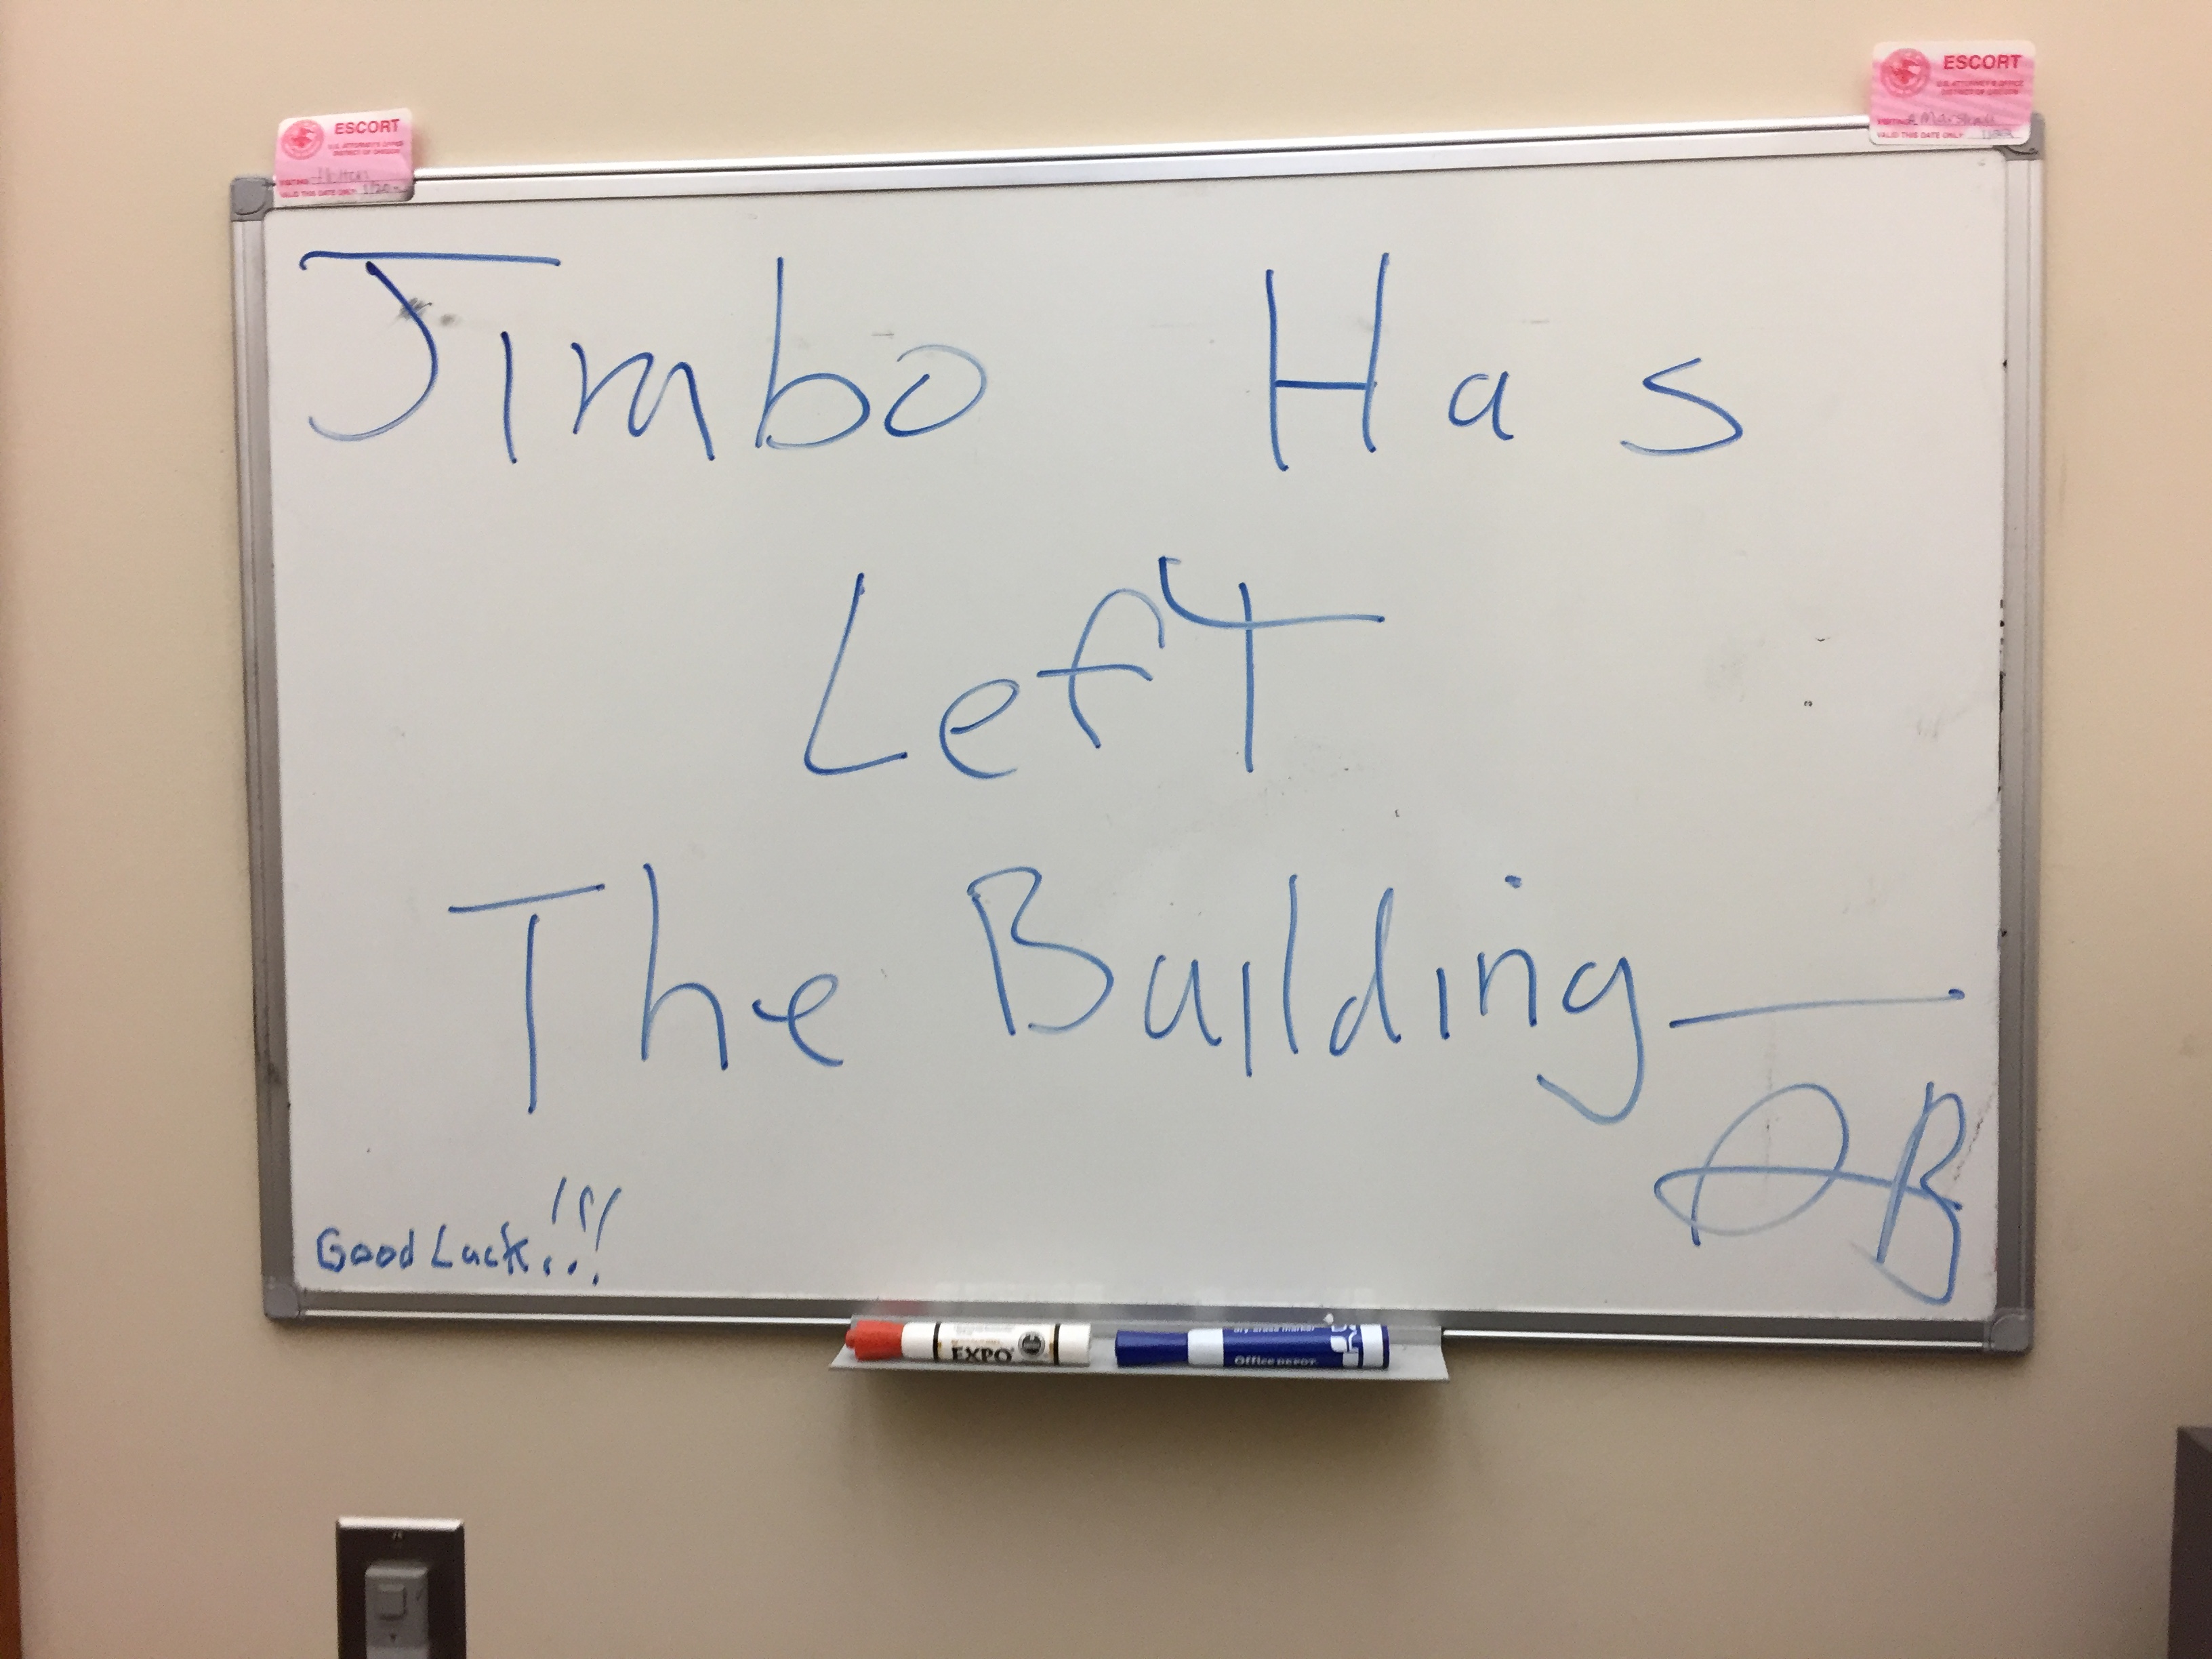 ESCORT
U.S. ATTORNEY'S OFFICE
DISTRICT OF OREGON
VISITING
VALID THIS DATE ONLY
ESCORT
U.S. ATTORNEY'S OFFICE
DISTRICT OF OREGON
VISITING
VALID THIS DATE ONLY
Jimbo Has
Left
The Building—
Good Luck!!!
EXPO
dry erase marker
Office DEPOT